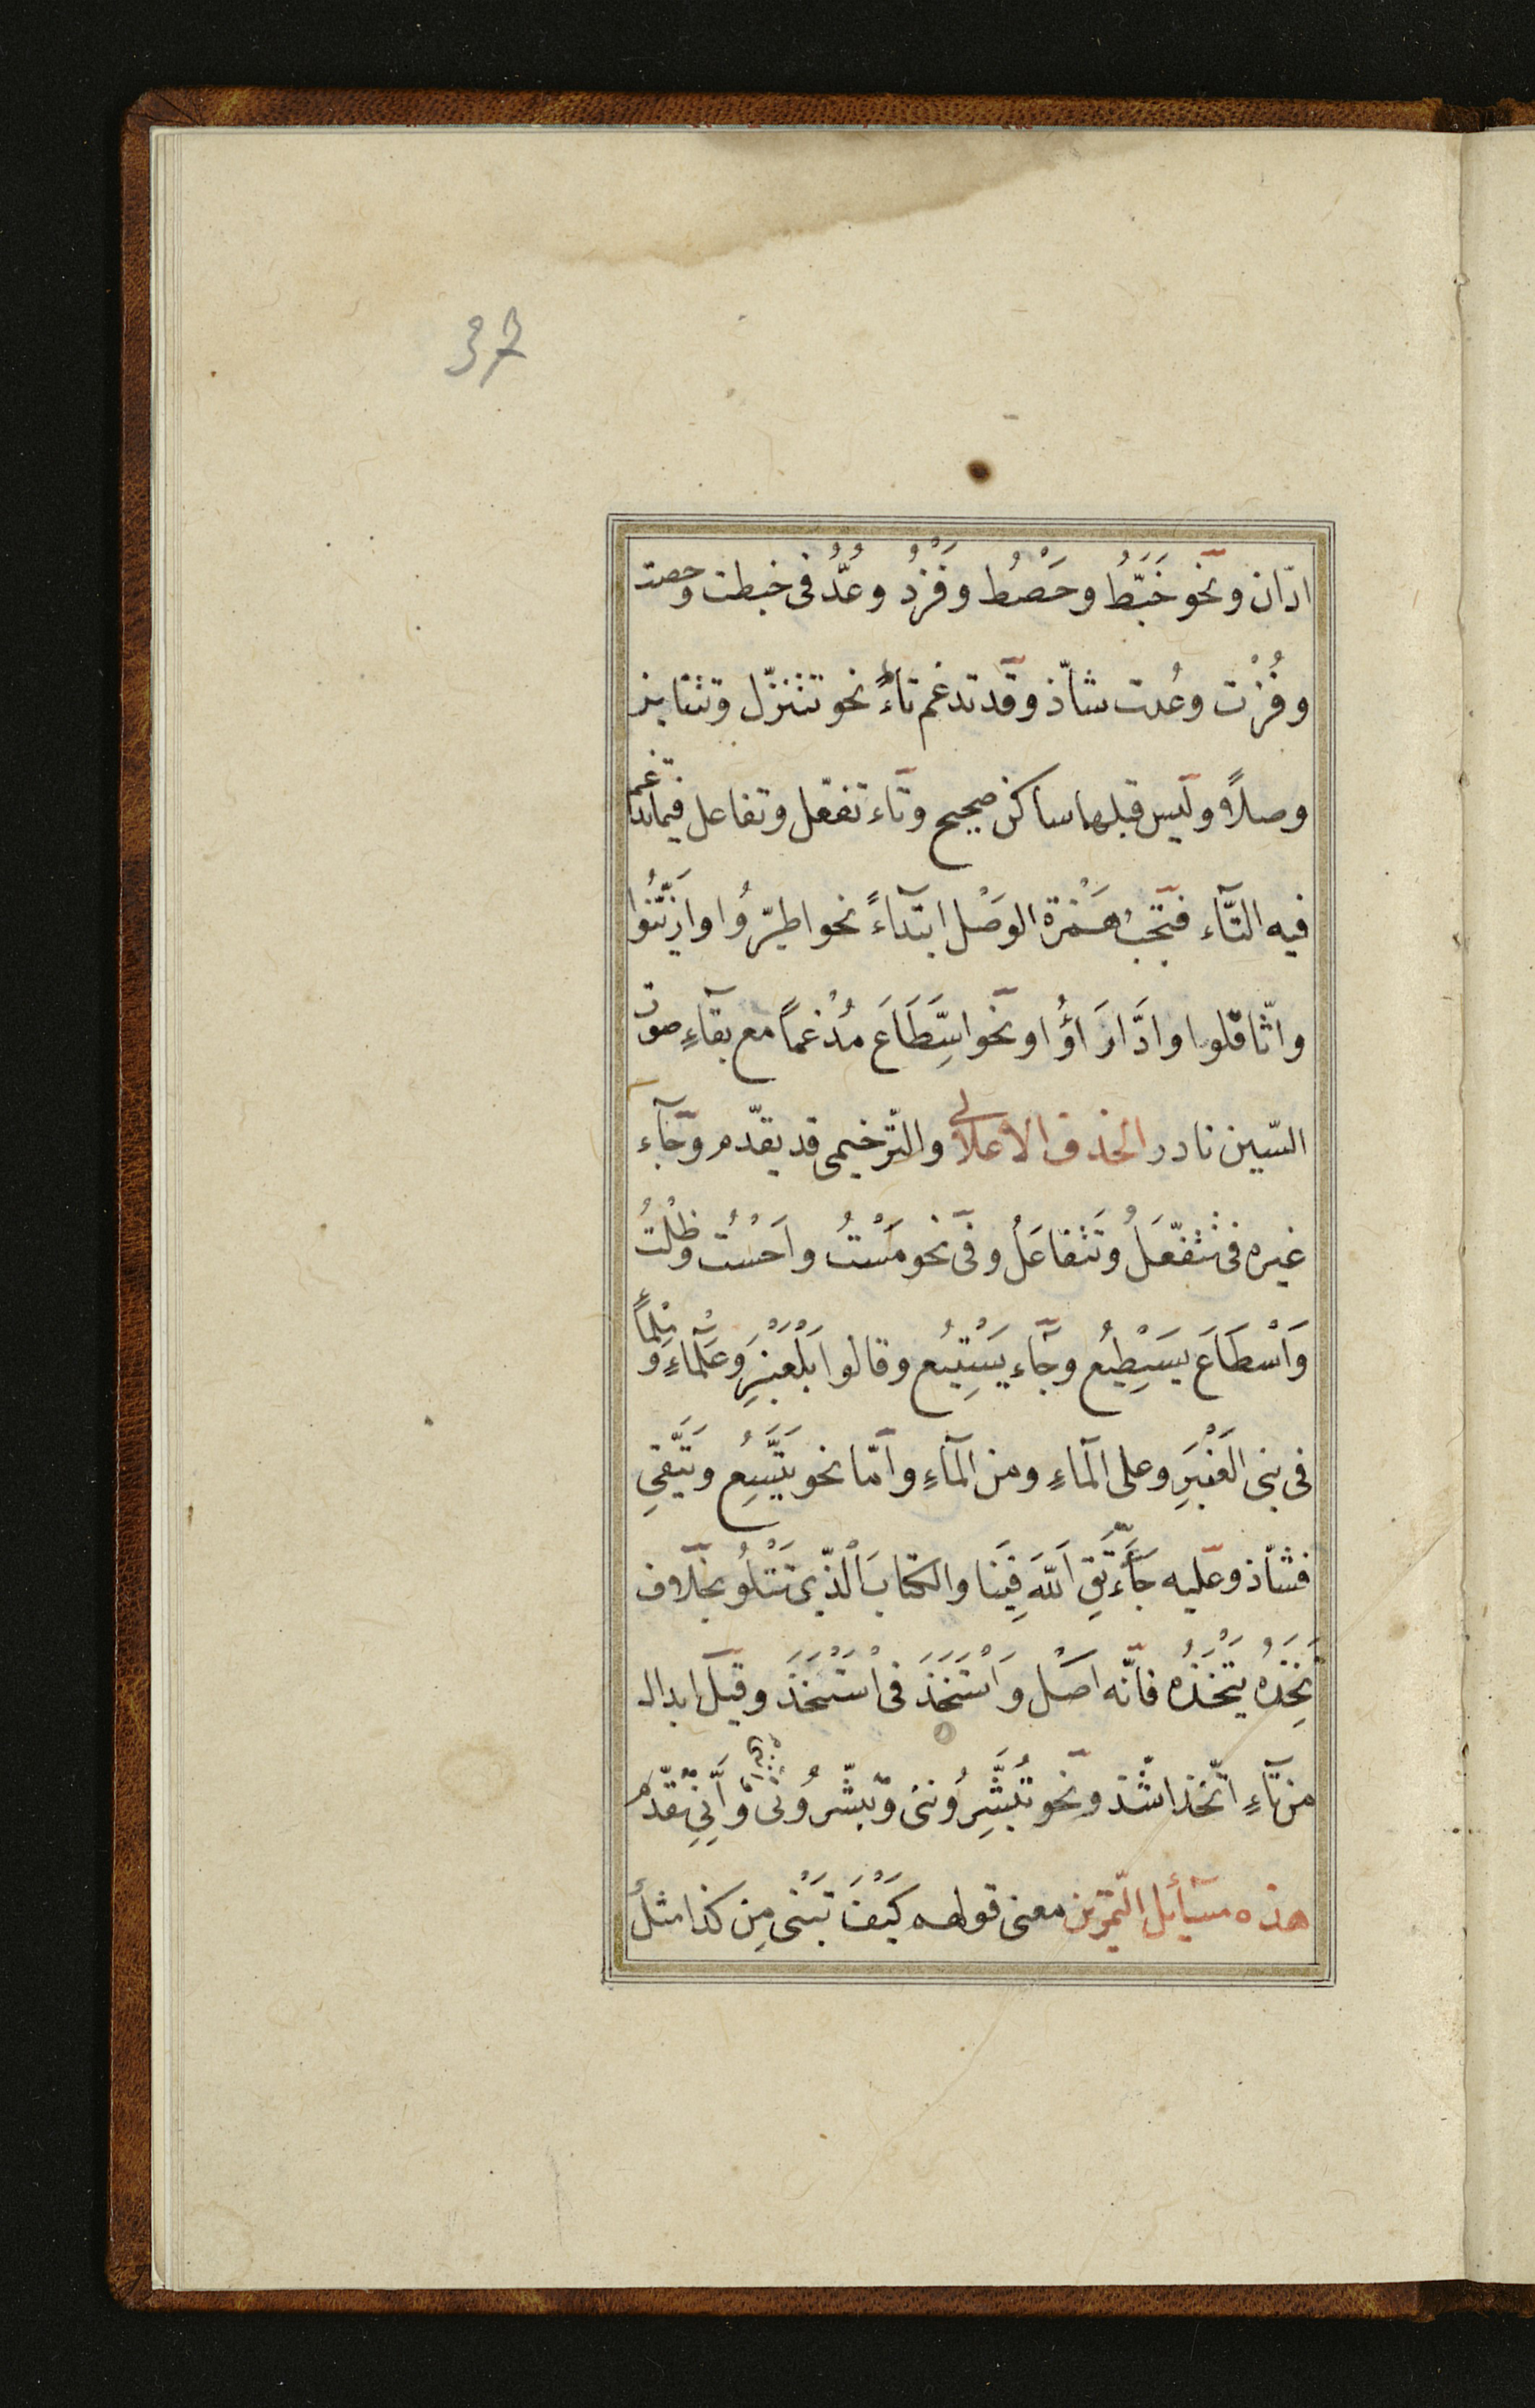 37
ادّان ونحو خَبَطُّ وحَصْطُ وفَزْدُ وعُدُّ فى خبطت وحصت
وفُزْت وعُدت شاذّ وقد تدغم تاءُ نحو تتنزّل وتتنابز
وصلاً وليس قبلها ساكن صحيح وتاء تفعّل وتفاعل فيما تدغم
فيه التّاء فتجب هَمْزة الوَصْل ابتداءً نحو اطيّرُوا وازّيّنُوا
واثّاقلوا وادَّارَاؤُا ونحو اسِّطَاعَ مُدْغماً مع بقاءِ صوت
السّين نادر الحذف الاعلالى والتّرخيمى قد يقدّم وجاء
غيره فى تَتَفَعَّلُ وتَتَفاعَلُ وفى نحو مَسْتُ واَحَسْتُ وظَلْتُ
وَاَسْطَاعَ يَسْطِيعُ وجاء يَسْتِيعُ وقالوا بَلْعَنْبَرِ وعَلْمَاءِ ومِلْمَاءِ
فى بنى العَنْبَرِ وعلى المَاءِ ومن المَاءِ وامّا نحو يَتَسِعُ ويَتَقِى
فشاذ وعليه جاء تَقِ اللّهَ فِينَا والكتابَ الّذِى تَتْلُو بخلاف
تَخِذَ يَتْخَذُه فانّه اصل وَاسْتَخَذَ فى اسْتَتْخَذَ وقيل ابدال
من تاءِ اتّخذ اشذّ ونحو تُبَشِّرُونّى وتبشّرُونى وَاِنِّى تقدّم
هذه مسائل التمرين معنى قولهم كَيْفَ تَبْنى مِن كذا مثل